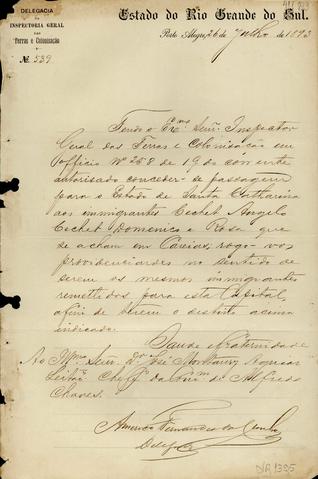 DELEGACIA
DA
INSPECTORIA GERAL
DAS
Terras e Colonisação
Nº 539
Estado do Rio Grande do Sul.
Porto Alegre, 26 de Julho de 1893
Tendo o Exmo Snr. Inspector
Geral das Terras e Colonisação em
officio Nº 258 de 19 do corrente
autorisado conceder-se passagem
para o Estado de Santa Catharina
aos immigrantes Cechet Angelo
Cechet Domenico e Rosa que
se acham em Caxias, rogo-vos
providencieis no sentido de
serem os mesmos immigrantes
remettidos para esta Capital,
afim de terem o destino acima
indicado.
Saude e Fraternidade
Ao Illmo Snr. Dr José Montaury
Leitão, Chefe da Comm de Alfredo
Chaves.
Americo Fernandes da Cunha
Delegado
DIA 1395